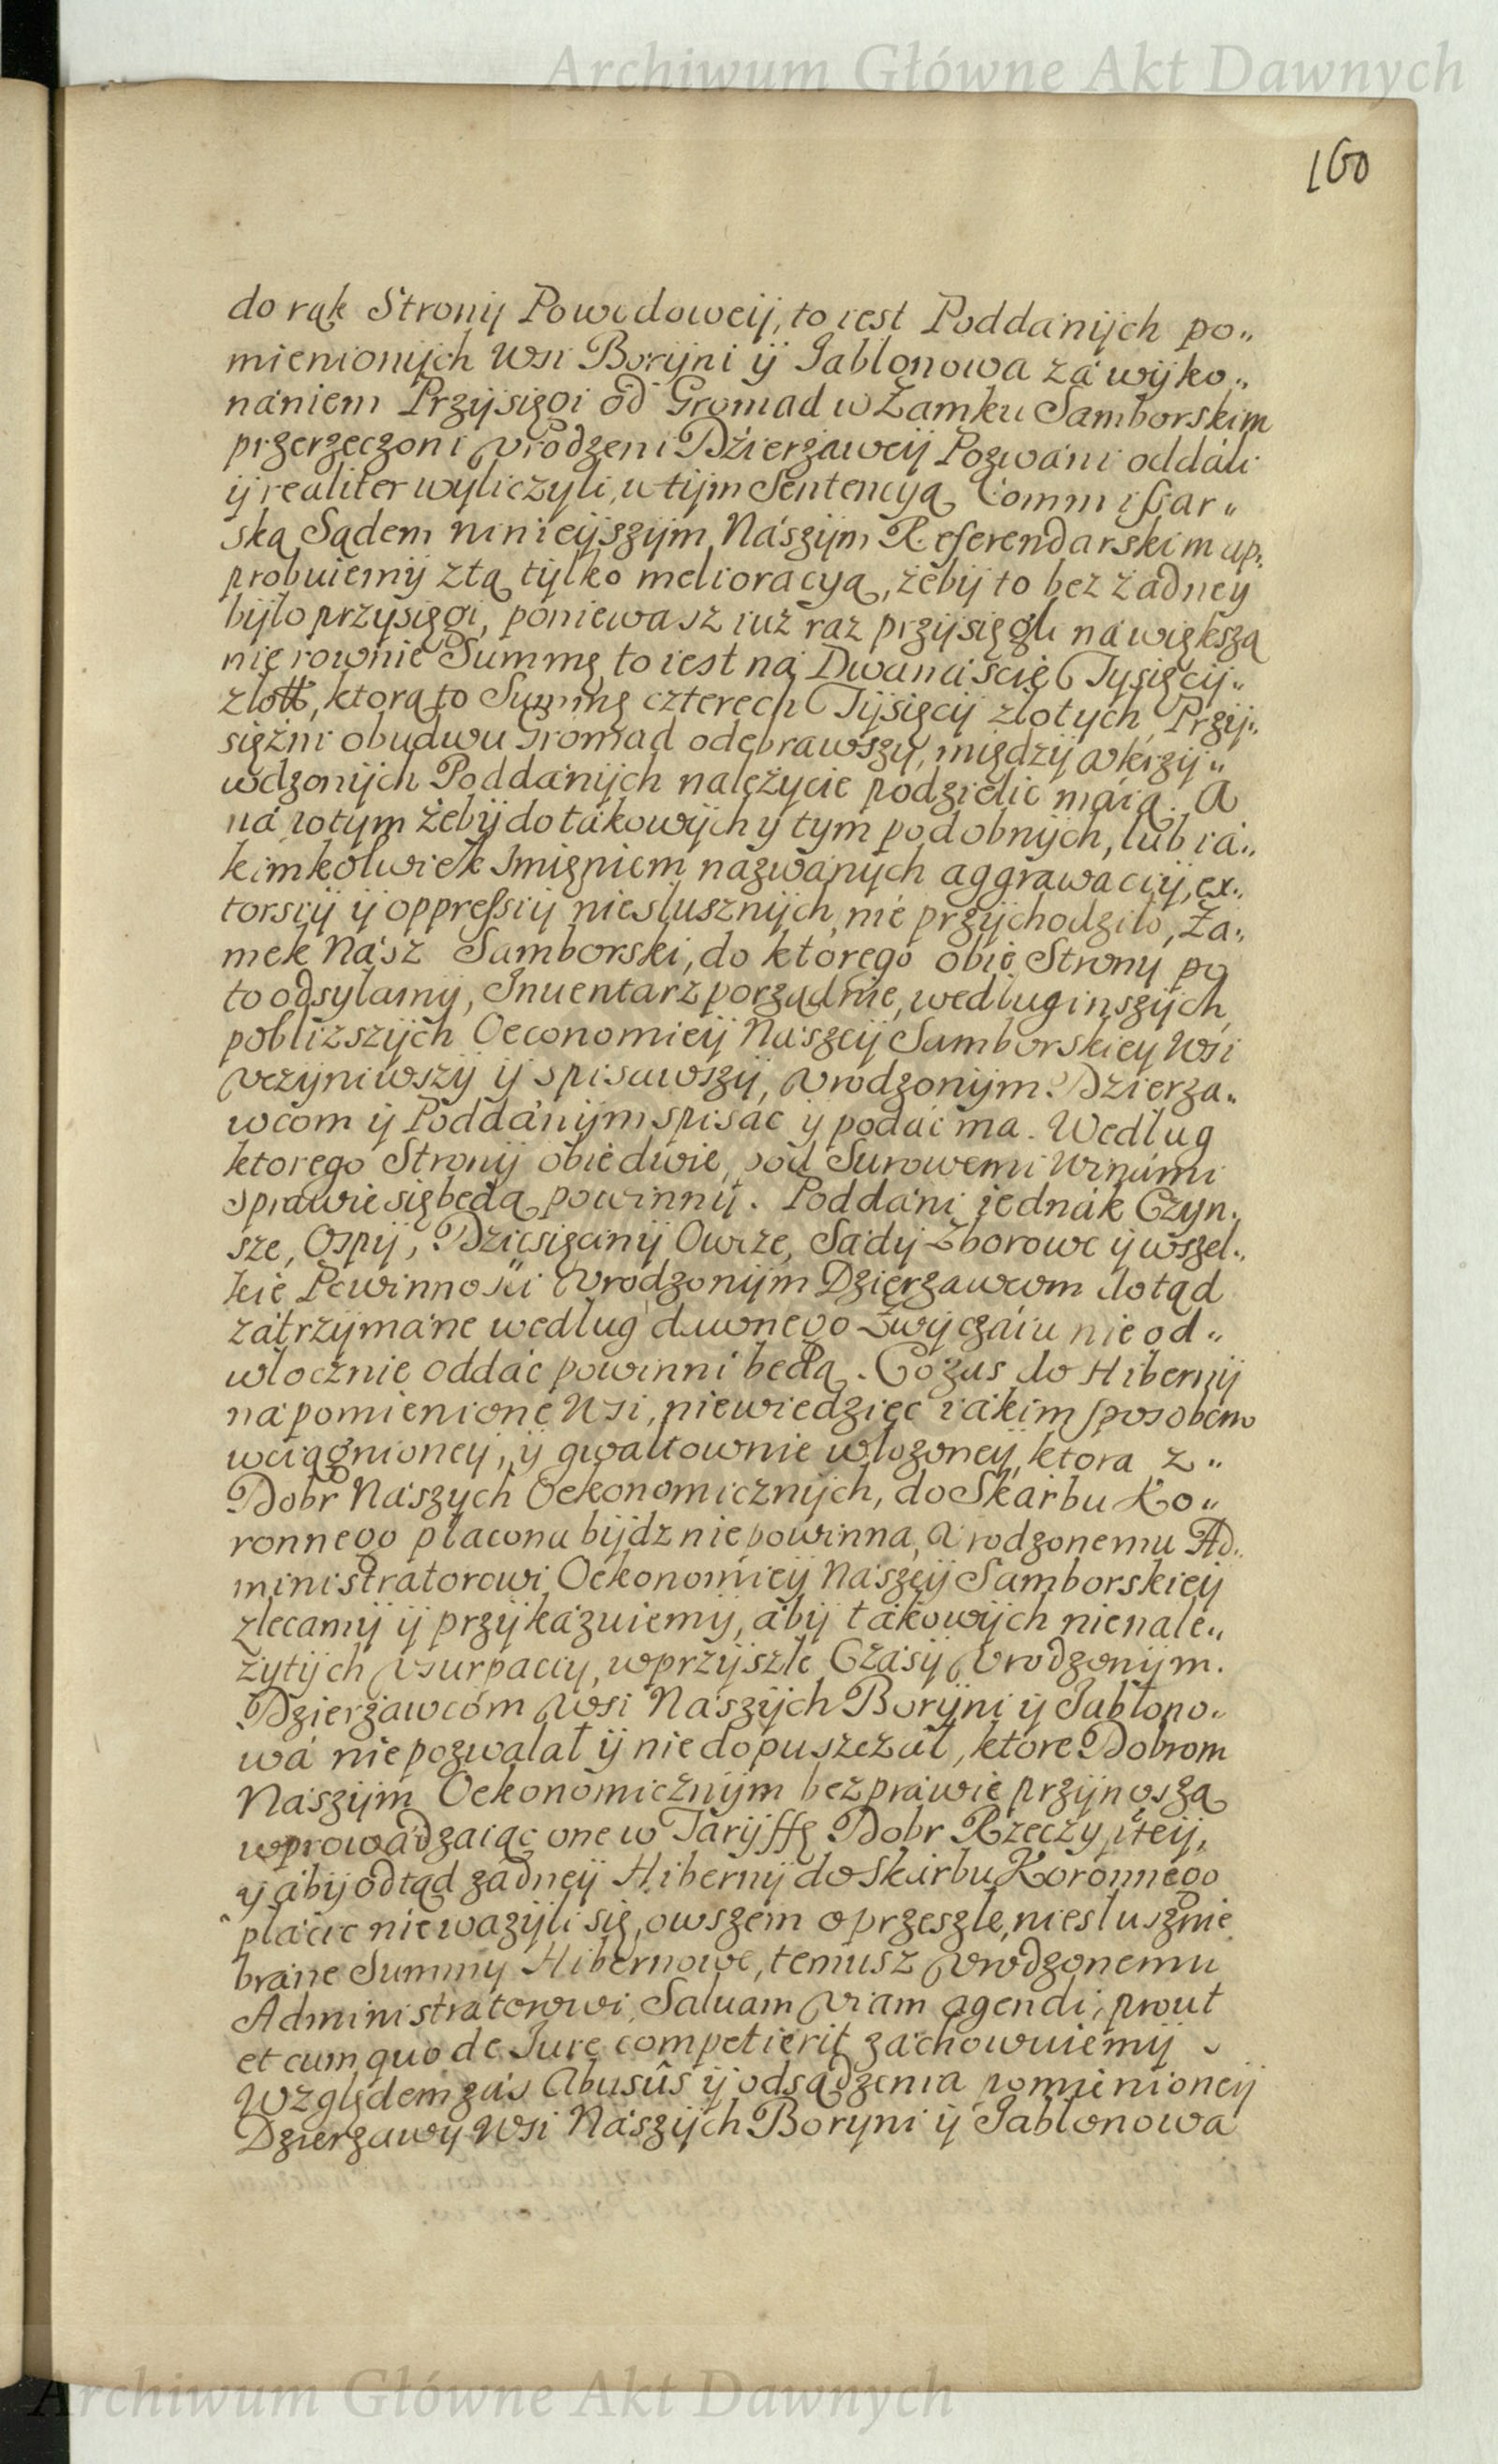 Archiwum Główne Akt Dawnych
160
do rąk Strony Powodowey, to iest Poddánijch po„
mienionijch Wsi Borijni ij Jablonowa zá wijko„
nániem Przijsięgi od Gromad w Zamku Samborskim
przerzeczoni Vrodzeni Dźierżawcij Pozwáni oddáli
ij realiter wyliczyli, w tijm Sentencyą Commissar„
ską Sądem ninieijszijm Nászijm Referendarskim ap„
probuiemij z tą tylko melioracyą, żebij to bez żadney
bijło przysięgi, poniewasz iuż raz przijsięgli ná większą
nierownie Summę to iest ná Dwanáscie Tysięcij„
złott, ktorą to Summę czterech Tijsięcij złotych Przij„
siężni obudwu Gromad odebrawszy, międzij Vkrzij„
wdzonijch Poddánijch należycie podzielic máią. A
ná potym żebij do tákowijch ij tym podobnijch, lub iá„
kimkolwiek Imieniem názwánych aggrawaciij, ex„
torsiij ij oppressiij niesłusznijch nie przijchodziło, Zá„
mek Nász Samborski, do ktorego obie Strony po
to odsyłamij, Inuentarz porządnie, według inszijch
pobliższijch Oeconomieij Nászeij Samborskiey Wsi
Vczyniwszij ij spisawszij, Vrodzonijm Dzierza„
wcom ij Poddánijm spisác ij podác ma. Według
ktorego Stronij obiedwie, pod Surowemi Winámi
sprawic się będą powinnij. Poddáni iednák Czyn„
sze, Ospij, Dziesięcinij Owcze, Sądij Zborowe ij wszel„
kie Powinnosci Vrodzonijm Dzierzawcom dotąd
zátrzijmáne według dawnego Zwijczáiu nie od„
włocznie oddác powinni będą. Cozas do Hibernij
ná pomienione Wsi, niewiedziec iákim sposobem
wciągnioneij, ij gwałtownie włozoneij, ktora z„
Dobr Nászych Oekonomicznijch, do Skárbu Ko„
ronnego płacona bijdz niepowinna, Vrodzonemu Ad„
ministratorowi Oekonomieij Nászeij Samborskieij
zlecamij ij przijkázuiemij, ábij tákowijch nienale„
żytijch Vsurpaciy, w przijszłe Czásij Vrodzonijm
Dzierżawcom Wsi Nászijch Borijni ij Jabłono„
wá nie pozwalał ij nie dopuszczał, ktore Dobrom
Nászijm Oekonomicznijm bezpráwie przijnoszą
wprowádzaiąc one w Tarijffę Dobr Rzeczypteij,
ij ábij odtąd żadneij Hibernij do Skárbu Koronnego
płácic nieważijli się, owszem o przeszłe, niesłusznie
bráne Summy Hibernowe, temusz Vrodzonemu
Administratorowi, Saluam Viam agendi, prout
et cum quo de Iure competierit záchowuiemij
Względem zás Abusûs ij odsądzenia pomienioneij
Dzierzawy Wsi Nászijch Boryni ij Jablonowa
Archiwum Główne Akt Dawnych